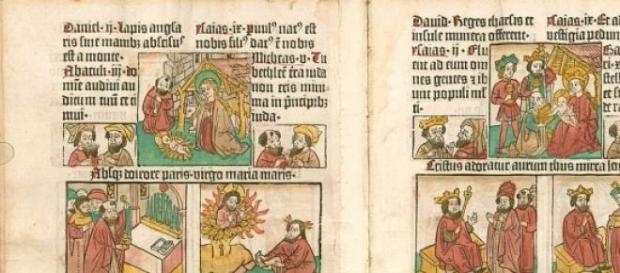 Daniel · ij · Lapis angula
ris sine manibz abscisus
est a monte.
Abacuk · iij · do
mie audivi au
nui ·
Ysaias · ix · Puul9 nat9 est
nobis fili9 dat9 e nobis
Micheas · v · Tu
bethlee tra iuda
non eris mini
ma in principibz
iuda ·
Absqz dolore paris · virgo maria maris ·
David · Reges tharsis et
insule munera offerent ·
Ysaias · ij · Flu
ent ad eum om
nes gentes z ib
unt populi ml
ti ·
Ysaias · ix · Et a
vestigia pedum
Cristus adoratur aurum thus mirra lo